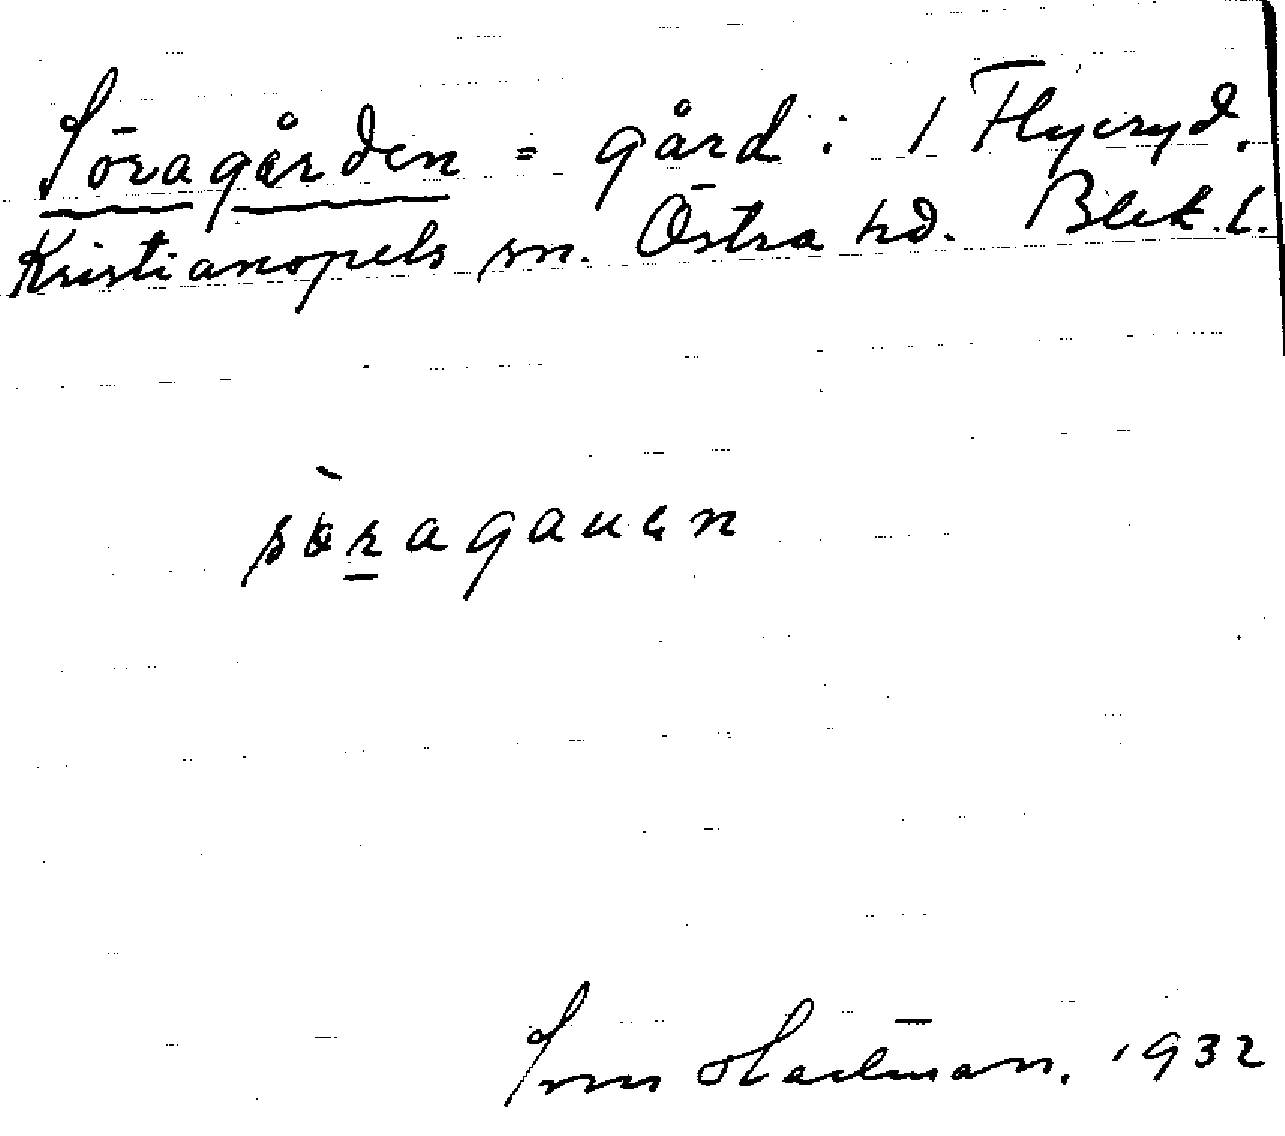 Söragården = gård i 1 Flyeryd.
Kristianopels sn. Östra hd. Blek. l.
söragauen
Hartman. 1932